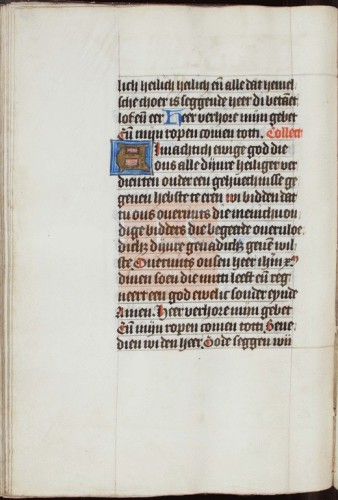 lich heilich heilich en̄ alle dat hemel
sche choer is seggende heer di betaet
lof en̄ eer Heer verhore mijn gebet
En̄ mijn ropen comen tot ti. Collect
Almachtich ewige god die
ons alle dijnre heiliger ver
dienten onder een gehuechnisse ge
geuen hebste te eren wi bidden dat
tu ons ouermits die menichuou
dige bidders die begeerde oueruloe
dich dijnre genadich geuen wil
ste Ouermits onsen heer ihm xpm
dinen soen die mit ti leeft en̄ reg
neert een god ewelic sonder eynde
Amen. Heer verhore mijn gebet
En̄ mijn ropen comen tot ti. Bene
dien wi den heer. Gode seggen wij